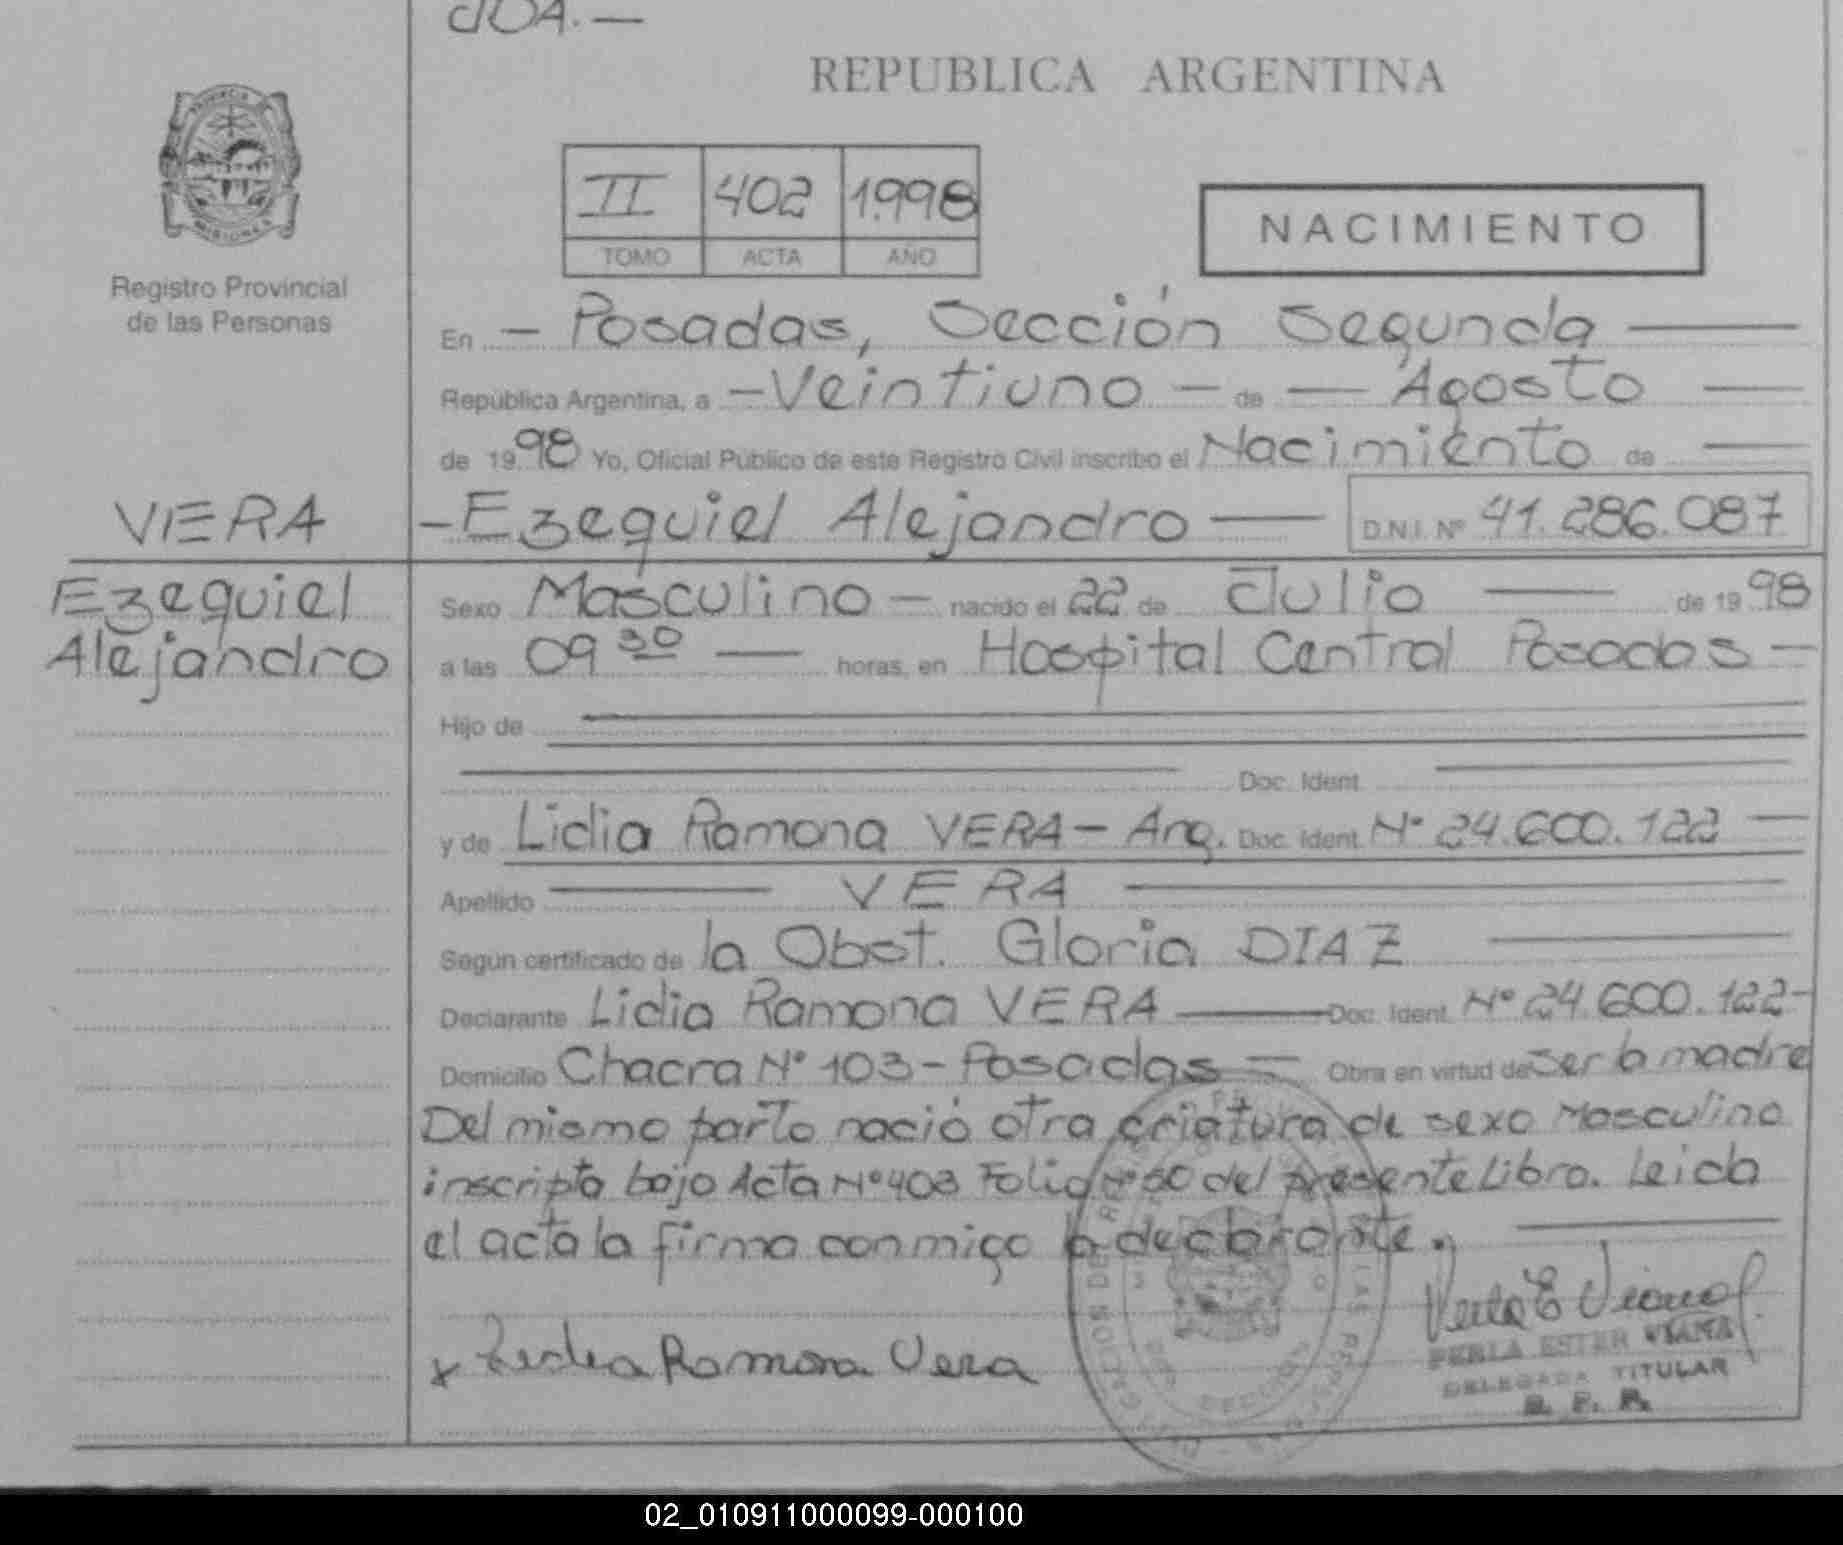 doa.—
REPUBLICA ARGENTINA
PROVINCIA
MISIONES
Registro Provincial
de las Personas
II 402 1.998
TOMO ACTA AÑO
NACIMIENTO
En — Posadas, Sección Segunda —
República Argentina, a — Veintiuno — de — Agosto —
de 19 98 Yo, Oficial Público de este Registro Civil inscribo el Nacimiento de —
VERA
— Ezequiel Alejandro — D.N.I. Nº 41.286.087
Ezequiel
Alejandro
Sexo Masculino — nacido el 22 de Julio — de 19 98
a las 09 30 — horas, en Hospital Central Posadas —
Hijo de
Doc. Ident.
y de Lidia Ramona VERA — Arg. Doc. Ident. Nº 24.600.122 —
Apellido — VERA —
Según certificado de la Obst. Gloria DIAZ —
Declarante Lidia Ramona VERA — Doc. Ident. Nº 24.600.122 -
Domicilio Chacra Nº 103 - Posadas — Obra en virtud de ser la madre
Del mismo parto nació otra criatura de sexo Masculino
inscripta bajo Acta Nº 403 Folio Nº 50 del presente Libro. Leida
el acta la firma conmigo la declarante. —
x Lidia Ramona Vera
PERLA ESTER VIANA
DELEGADA TITULAR
R. P. P.
02_010911000099-000100